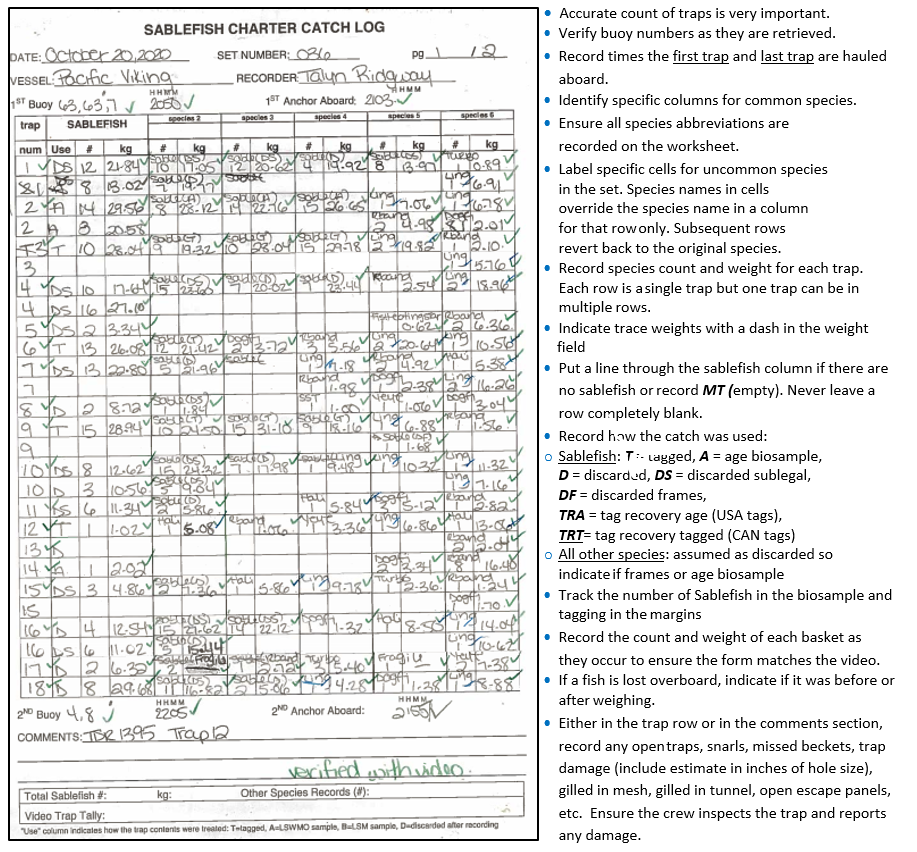 SABLEFISH CHARTER CATCH LOG
DATE: October 20, 2020 SET NUMBER: 036 pg 1 / 2
VESSEL: Pacific Viking RECORDER: Talyn Ridgway
1ST Buoy 63,63,7 HHMM 2050 1ST Anchor Aboard: HHMM 2103
trap SABLEFISH species 2 species 3 species 4 species 5 species 6
num Use # kg # kg # kg # kg # kg # kg
1 DS 12 21.84 Sable(DS) 10 17.05 Sable(DS) 12 20.62 Sable(DS) 4 19.92 Sable(DS) 8 13.97 Turbo 1 0.89
8 13.02 Sable(D) 7 19.77 Ling 1 6.91
2 A 14 29.56 Sable(A) 8 28.12 Sable(A) 14 22.76 Sable(A) 15 26.65 Ling 1 7.06 Ling 1 6.78
2 A 3 20.58 Rband 2 4.98 Dogf 2.01
T 10 28.04 Sable(T) 9 19.32 Sable(T) 10 28.04 Sable(T) 5 29.78 Ling 2 19.82 Rband 1 2.10
3 Ling 1 5.76
4 DS 10 17.61 Sable(DS) 15 23.60 Sable(DS) 7 20.02 Sable(DS) 23.44 Rband 2.54 Ling 2 18.96
4 DS 16 27.10
5 DS 2 3.34 0.62 Rband 2 6.36
6 T 13 26.08 Sable(T) 12 21.42 Dogf 2 3.72 Rband 3 5.56 Ling 2 20.64 Ling 1 10.56
7 DS 13 22.80 Sable(D) 5 21.96 Ling 1 7.18 Rband 2 4.92 Hali 5.38
7 Rband 1 1.98 Dogf 1 2.38 Ling 2 16.26
8 D 2 8.72 Sable(DS) 1 1.84 SST 1 1.00 Yeye 1 1.06 Dogf 3.04
9 T 15 28.94 Sable(T) 10 24.50 Sable(T) 15 31.10 Sable(T) 9 18.16 Ling 1 6.88 Rband 1 1.56
9 Sable(DF) 1 1.68
10 DS 8 12.62 Sable(DS) 15 24.32 Sable(DS) 7 17.98 Ling 1 9.48 Ling 1 10.32 Ling 1 11.32
10 D 3 10.56 Sable(DS) 5 9.84 Ling 1 7.16
11 6 11.34 Sable(D) 2 5.86 Hali 1 5.84 Dogf 3 5.12 Rband 1 2.82
12 T 1 1.02 Hali 1 5.08 Rband 1 1.06 Yeye 1 3.36 Ling 1 6.86 Hali 1 13.06
13 Rband 2 2.04
14 A 1 2.02 Dogf 1 2.34 Rband 8 16.40
15 DS 3 4.86 Sable(D) 2 7.36 Hali 1 5.86 Ling 1 9.78 Turbo 1 2.36 Rband 1.24
15 Dogf 1 1.70
16 D 4 12.54 Sable(DS) 15 27.62 Sable(DS) 14 22.12 Dogf 1 1.32 Hali 1 8.50 Ling 1 14.04
16 6 11.02 Sable(D) 3 15.44 Ling 1 10.62
17 D 2 6.30 Fragile 2.70 Turbo 5.40 Fragile Hali 2 7.38
18 D 8 29.68 Sable(DS) 11 16.82 Sable(DS) 2 5.06 Ling 1 4.28 Dogf 1 1.38 Ling 1 8.88
2ND Buoy 4,8 HHMM 2205 2ND Anchor Aboard: HHMM 2155
COMMENTS: TSR 1395 Trap 12
verified with video.
Total Sablefish #: kg: Other Species Records (#):
Video Trap Tally:
"Use" column indicates how the trap contents were treated: T=tagged, A=LSWMO sample, B=LSM sample, D=discarded after recording
• Accurate count of traps is very important.
• Verify buoy numbers as they are retrieved.
• Record times the first trap and last trap are hauled
aboard.
• Identify specific columns for common species.
• Ensure all species abbreviations are
recorded on the worksheet.
• Label specific cells for uncommon species
in the set. Species names in cells
override the species name in a column
for that row only. Subsequent rows
revert back to the original species.
• Record species count and weight for each trap.
Each row is a single trap but one trap can be in
multiple rows.
• Indicate trace weights with a dash in the weight
field
• Put a line through the sablefish column if there are
no sablefish or record MT (empty). Never leave a
row completely blank.
• Record how the catch was used:
o Sablefish: T = tagged, A = age biosample,
D = discarded, DS = discarded sublegal,
DF = discarded frames,
TRA = tag recovery age (USA tags),
TRT= tag recovery tagged (CAN tags)
o All other species: assumed as discarded so
indicate if frames or age biosample
• Track the number of Sablefish in the biosample and
tagging in the margins
• Record the count and weight of each basket as
they occur to ensure the form matches the video.
• If a fish is lost overboard, indicate if it was before or
after weighing.
• Either in the trap row or in the comments section,
record any open traps, snarls, missed beckets, trap
damage (include estimate in inches of hole size),
gilled in mesh, gilled in tunnel, open escape panels,
etc. Ensure the crew inspects the trap and reports
any damage.